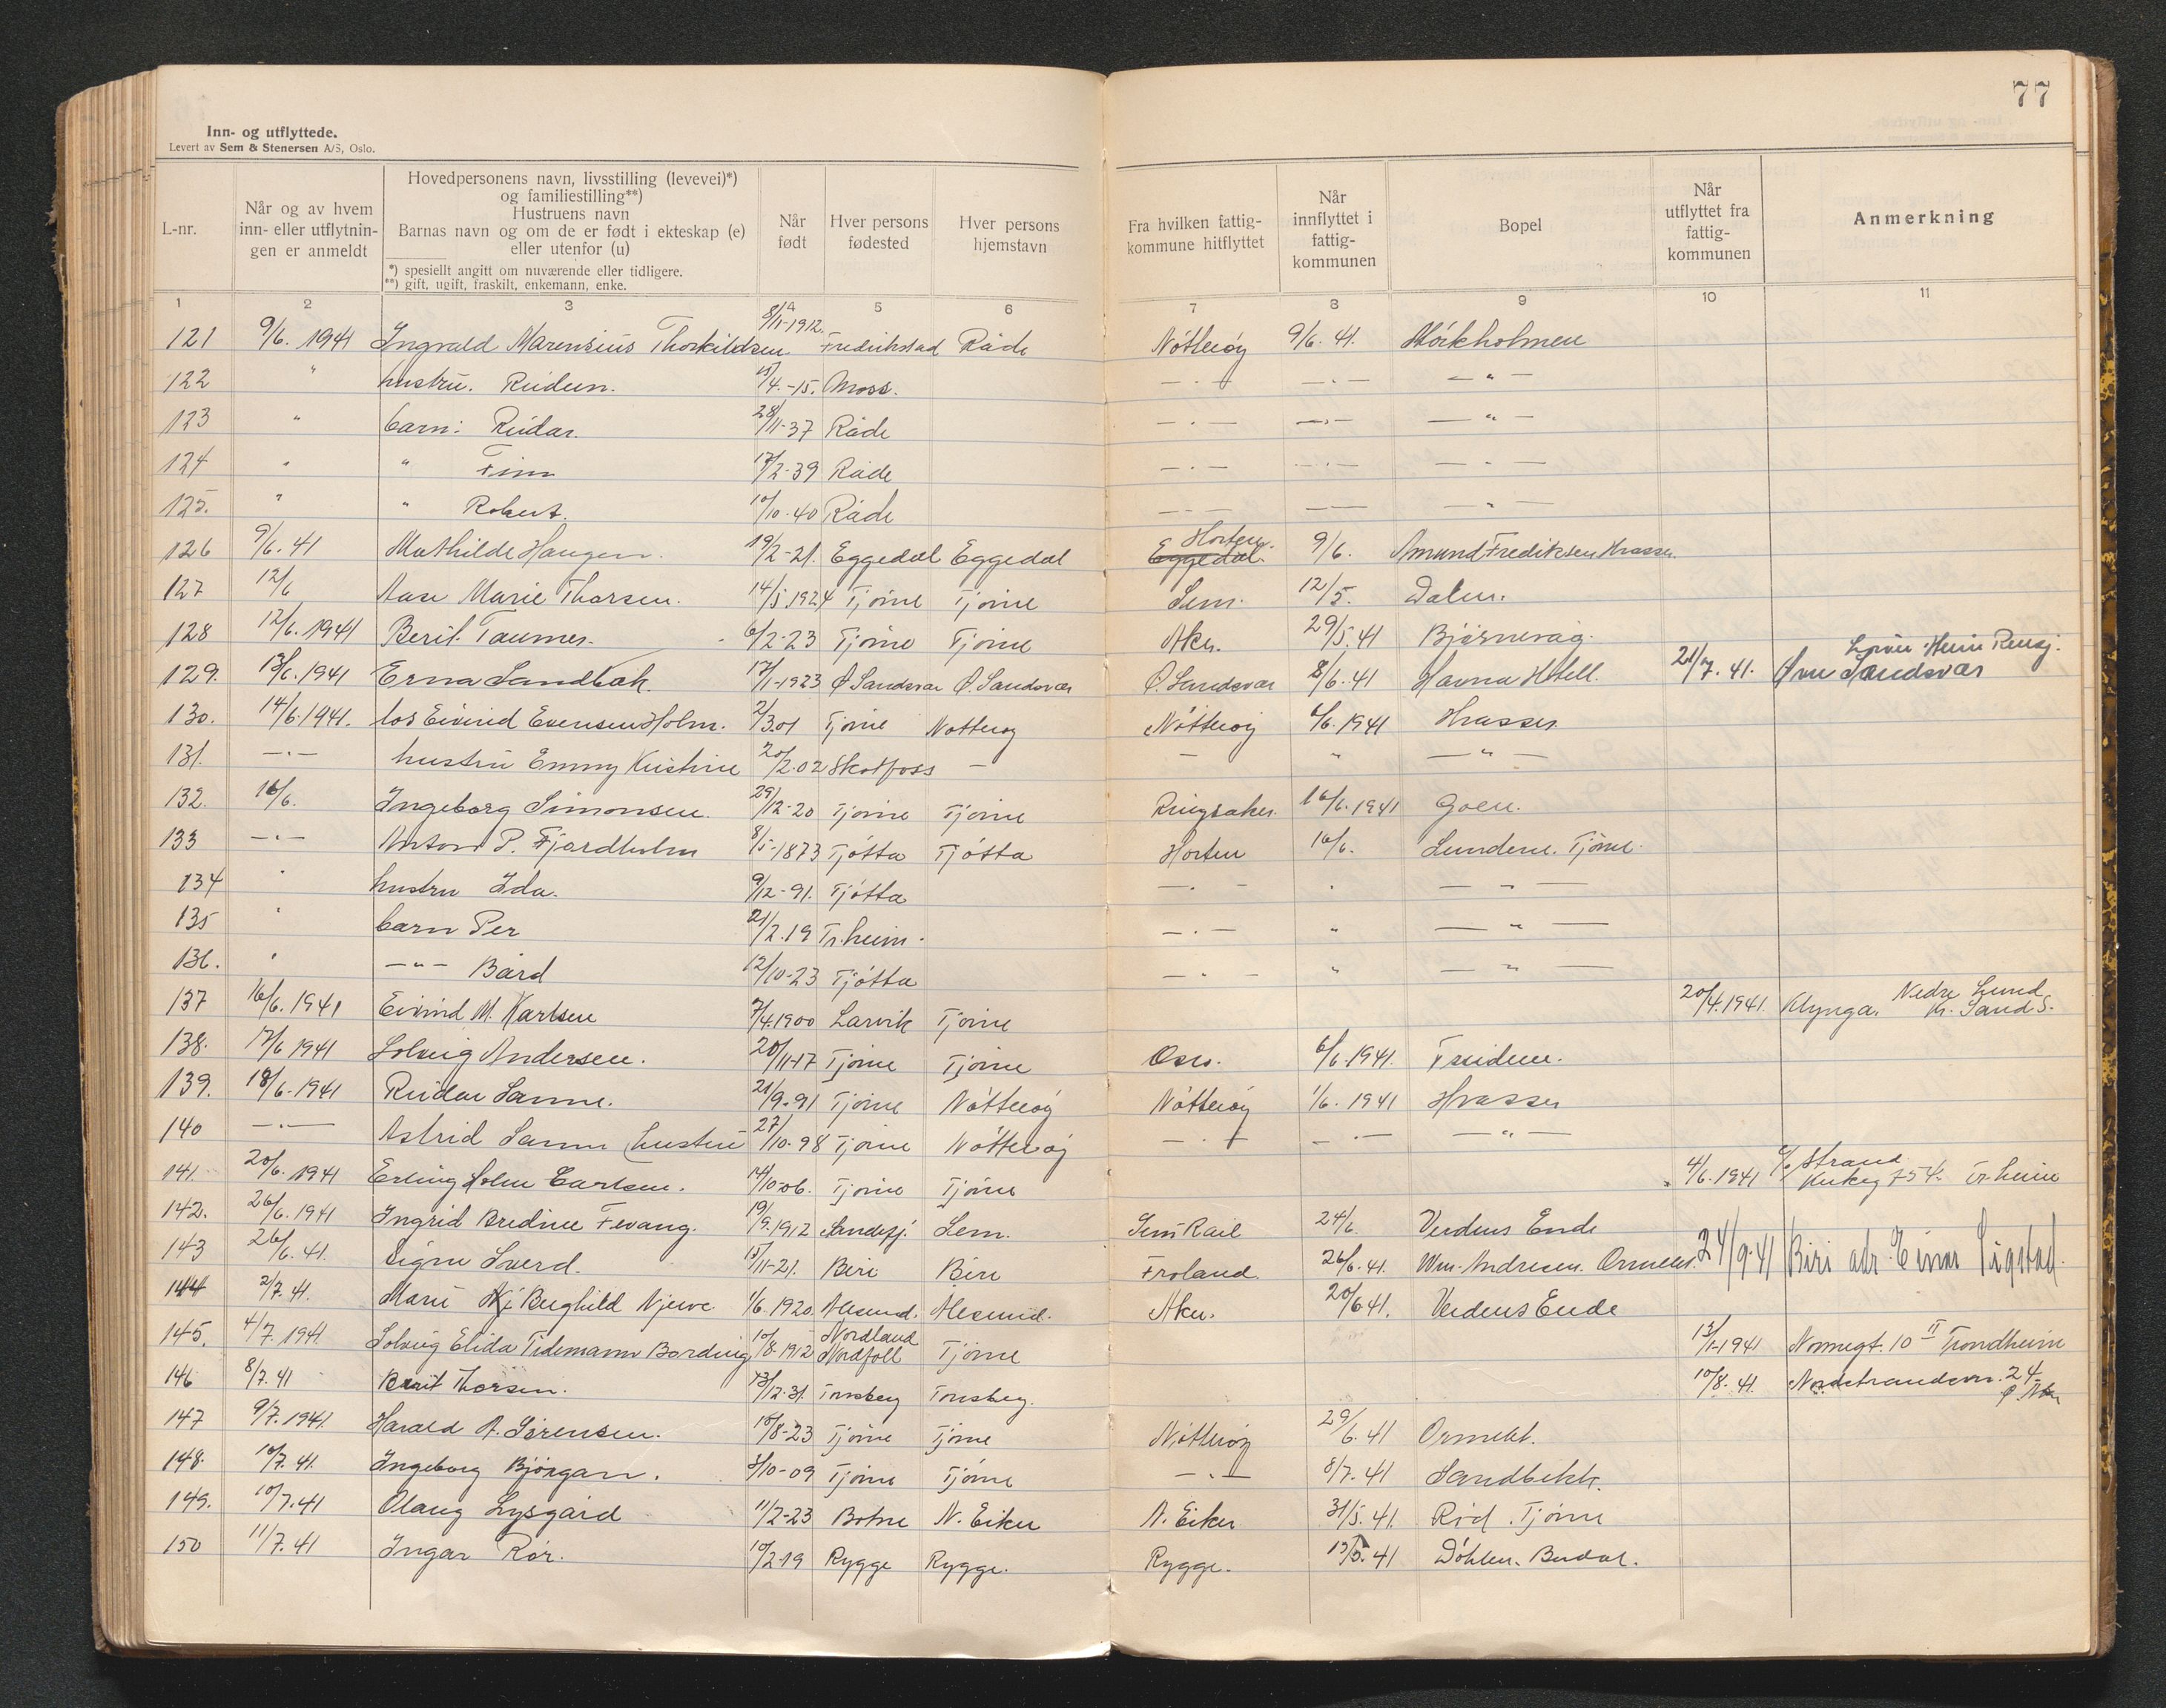 77
Inn- og utflyttede.
Levert av Sem & Stenersen A/S, Oslo.
L-nr.
Når og av hvem inn- eller utflytningen er anmeldt
Hovedpersonens navn, livsstilling (levevei)*) og familiestilling**)
Hustruens navn
Barnas navn og om de er født i ekteskap (e) eller utenfor (u)
*) spesiellt angitt om nuværende eller tidligere.
**) gift, ugift, fraskilt, enkemann, enke.
Når født
Hver persons fødested
Hver persons hjemstavn
Fra hvilken fattigkommune hitflyttet
Når innflyttet i fattigkommunen
Bopel
Når utflyttet fra fattigkommunen
Anmerkning
1 2 3 4 5 6 7 8 9 10 11
121 9/6. 1941 Ingvald Marensius Thorkildsen 8/11-1912. Fredrikstad Råde Nötteröy 9/6. 41. Mörkholmen
122 " hustru. Reidun. 15/4.-15. Moss. — · — — · — — " —
123 " barn: Reidar. 28/11-37 Råde — · — — · — — " —
124 " " Finn 17/2-39 Råde — · — — · — — " —
125. " " Robert. 10/10-40 Råde — · — — · — — " —
126 9/6. 41 Mathilde Haugen. 19/2-21. Eggedal Eggedal Eggedal. Horten. 9/6. Amund Fredriksen Hvasser.
127 12/6 Aase Marie Thorsen. 14/5.1924 Tjöme Tjöme Sem. 12/5. Dalen.
128 12/6. 1941 Berit Taumes. 6/2-23 Tjöme Tjöme Aker. 29/5. 41 Bjørnevåg.
129. 13/6. 1941 Erna Sandbak. 17/11-1923 Ø. Sandsvær Ø. Sandsvær Ø. Sandsvær 8/6. 41 Havna Hotell. 21/7. 41. Øvre Sandsvær
130. 14/6.1941. los Eivind Evensen Holm. 2/3.01 Tjöme Nötteröy Nötteröy 6/6. 1941 Hvasser
131. — · — hustru Emmy Kristine 20/2.02 Skotfoss — — " — " —
132. 16/6. Ingeborg Simonsen. 29/12-20 Tjöme Tjöme Ringsaker. 16/6. 1941 Goen.
133 — · — Anton P. Fjordholm 8/5-1873 Tjötta Tjötta Horten 16/6. Lundene. Tjöme.
134 " hustru Ida. 9/12-91. Tjötta — · — " — " —
135 " barn Per 21/2.19 Tr.heim. — · — " — " —
136. " — " — Bård 12/10-23 Tjötta — " — " — " —
137 16/6. 1941 Eivind M. Karlsen 7/4.1900 Larvik Tjöme 20/4.1941. Klynga. Nedre Lund Kr. Sand S.
138. 17/6 1941 Solveig Andersen. 20/11-17 Tjöme Tjöme Oslo. 6/6.1941. Treidene.
139. 18/6-1941 Reidar Sanne. 21/9-91 Tjöme Nötteröy Nötteröy 1/6. 1941 Hvasser
140 — · — Astrid Sanne (hustru 27/10-98 Tjöme Nötteröy — · — — · — — " —
141. 20/6. 1941 Erling Holm Carlsen. 14/10.06. Tjöme Tjöme 4/6. 1941 c/o Strand 754. Tr.heim
142. 26/6. 1941 Ingrid Bredine Fevang. 19/9.1912 Sandefj. Sem. Sem 24/6. Verdens Ende
143 26/6. 41. Signe Sverd. 15/11-21. Biri Biri Froland. 26/6. 41. Wm. Andresen. Ormelet. 24/9-41 Biri adr. Einar Sigstad.
144 2/7. 41. Berghild Njerve 1/6. 1920. Ålesund. Ålesund. Aker. 20/6 41. Verdens Ende
145. 4/7. 1941. Solveig Elida Tidemann Bording 10/8-1912 Nordland Nordfold Tjöme 13/1-1941 Nonnegt. 10 II Trondheim
146 8/7. 41 Berit Thorsen. 13/12-31. Tønsberg Tønsberg. 10/8. 41. Nordstrandsvn. 24.
147 9/7. 1941. Harald A. Sørensen. 15/8-23 Tjöme Tjöme Nötteröy 29/6. 41 Ormelet.
148. 10/7. 41. Ingeborg Bjørgan. 3/10-09 Tjöme Tjöme — · — 8/7. 41 Sandbekk.
149. 10/7.41 Olaug Lysgård 11/2-23 Botne N. Eiker N. Eiker 31/5. 41. Rød. Tjöme
150 11/7. 41 Ingar Rör. 10/2-19 Rygge Rygge. Rygge. 13/5. 41 Döhlen. Budal.